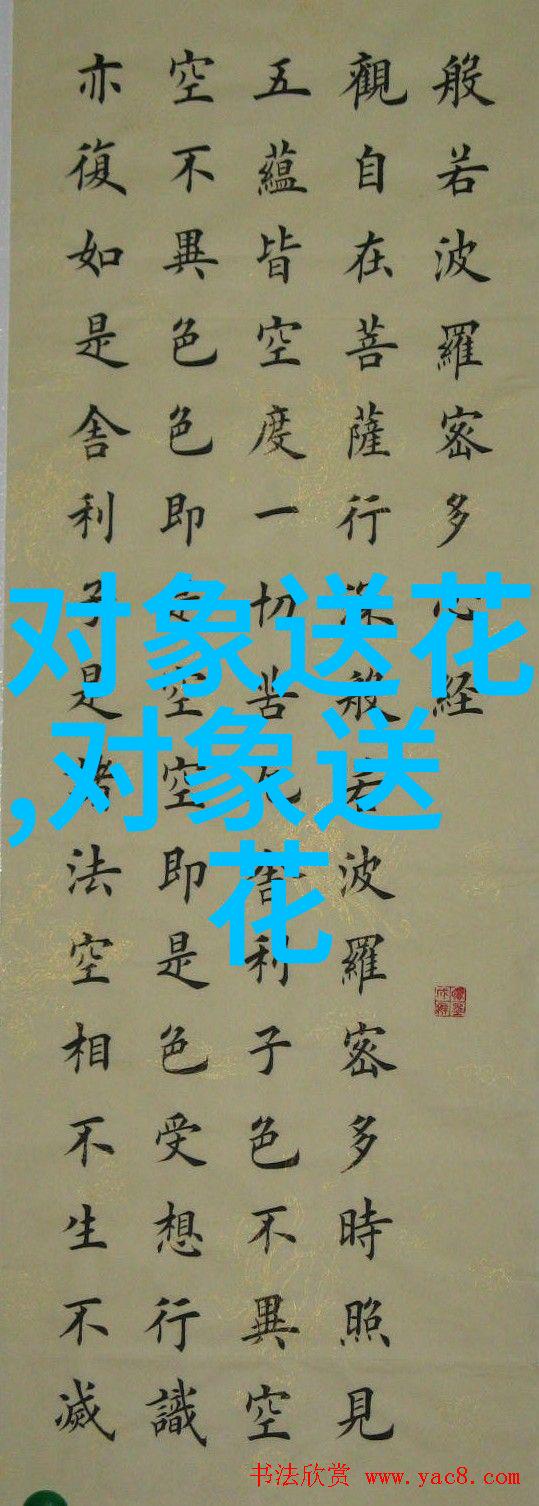 般若波羅密多心経
觀自在菩薩行深般若波羅密多時照見
五蘊皆空度一切苦厄舍利子色不異空
空不異色色即是空空即是色受想行識
亦復如是舍利子是諸法空相不生不滅
对象送花
,对象送
花
书法欣赏 www.yac8.com